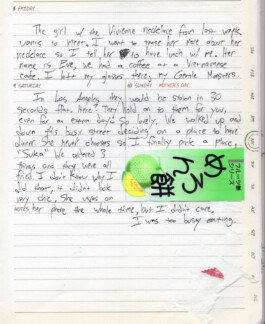 8 FRIDAY
The girl w/ the Vivienne necklace from last week
wants to meet. I want to tease her more about her
necklace so I tell her to have lunch w/ me. Her
name is Eve, we had a coffee at a Vietnamese
cafe. I left my glasses there, my Gentle Monsters.
9 SATURDAY 10 SUNDAY MOTHER'S DAY
In Los Angeles they would be stolen in 30
seconds. They hold on to them for you,
even for an extra day! So lovely. We walked up and
down this busy street deciding on a place to have
dinner. She never chooses so I finally pick a place,
"Suka" We ordered 3
things and they were all
fried I don't know why I
did that, it didn't look
very chic. She was on
NOTES her phone the whole time, but I didn't care,
I was too busy eating.
めろん餅
フルーツ餅シリーズ